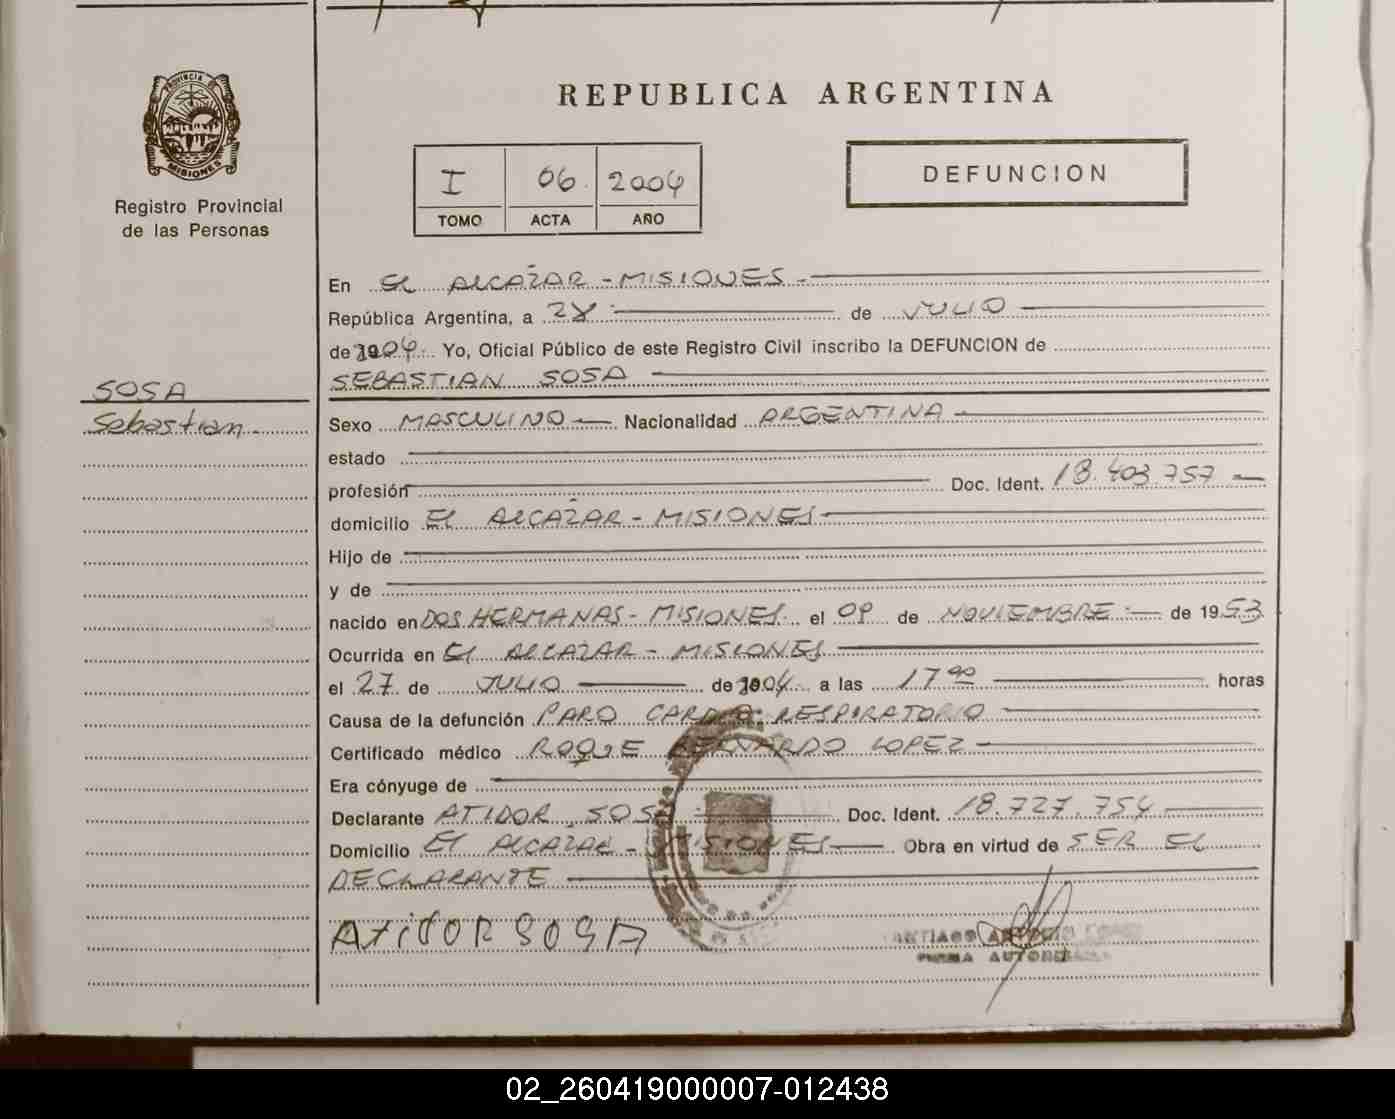 REPUBLICA ARGENTINA
PROVINCIA
MISIONES
Registro Provincial
de las Personas
I 06 2004
TOMO ACTA AÑO
DEFUNCION
En EL ALCAZAR - MISIONES -
República Argentina, a 28 de JULIO
de 2004 Yo, Oficial Público de este Registro Civil inscribo la DEFUNCION de
SEBASTIAN SOSA
SOSA
Sebastian
Sexo MASCULINO Nacionalidad ARGENTINA
estado
profesión Doc. Ident. 18.403.757
domicilio EL ALCAZAR - MISIONES
Hijo de
y de
nacido en DOS HERMANAS - MISIONES el 09 de NOVIEMBRE de 1953
Ocurrida en El ALCAZAR - MISIONES
el 27 de JULIO de 2004 a las 17 horas
Causa de la defunción PARO CARDIO RESPIRATORIO
Certificado médico ROQUE BERNARDO LOPEZ
Era cónyuge de
Declarante ATIDOR SOSA Doc. Ident. 18.727.754
Domicilio El ALCAZAR - MISIONES Obra en virtud de SER EL
DECLARANTE
ATIDOR SOSA
SANTIAGO ANTONIO
FIRMA AUTORIZADA
02_260419000007-012438